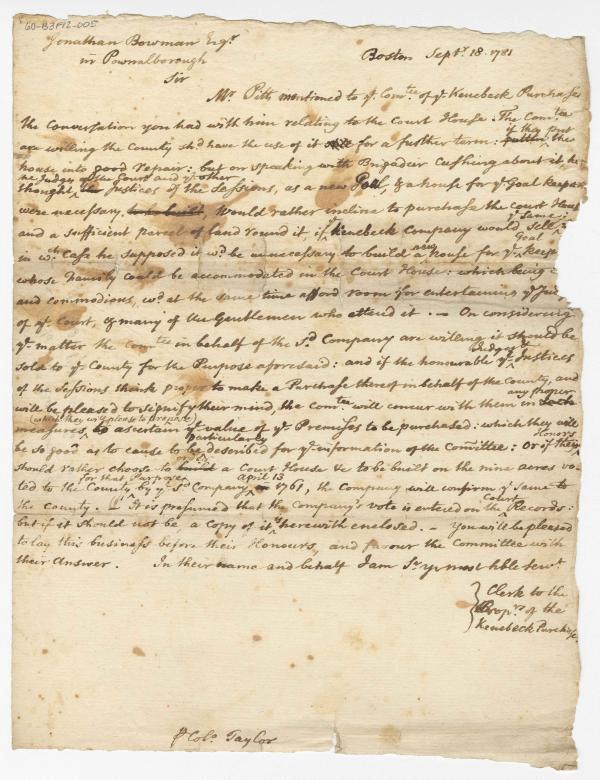 60-B3F12-005
Jonathan Bowman Esqr.
in Pownalborough
Boston Septr. 18. 1781
Sir
Mr. Pitts mentioned to ye. Comtee of ye. Kenebeck Purchase
the Conversation you had with him relating to the Court House: The Comtee
are willing the County shd. have the use of it still for a further term: if they put
the house into good repair: but on speaking with Brigadier Cushing about it, he
he Judge of the Court and ye. other
thought, the Justices of the Sessions, as a new Goal, & a house for ye. Goal keeper
were necessary, to be built, Would rather incline to purchase the Court House
and a sufficient parcel of land round it, if ye Kenebeck Company would sell ye. same:
in wch. Case he supposed it wd. be unnecessary to build a new house for ye. Goal Keep
whose Family could be accommodated in the Court House: which being
and commodious, wd. at the same time afford room for entertaining ye. Jud
of ye. Court, & many of the Gentlemen who attend it. — On considering
ye. matter the Comtee in behalf of the Sd. Company are willing it should be
sold to ye. County for the Purpose aforesaid: and if the honourable ye. Judges & Justices
of the Sessions think proper to make a Purchase thereof in behalf of the County, and
will be pleased to signify their mind, the Comtee. will concur with them in any proper
(which they will please to propose)
measures, to ascertain ye. value of ye. Premises to be purchased: which they will
be so good as to cause to be particularly described for ye. information of the Committee: Or if their Honors
should rather choose to build a Court House &c to be built on the nine acres vo-
ted to the County for that Purpose by ye. Sd. Company April 13 1761, the Company will confirm ye. same to
the County. It is presumed that the Company's vote is entered on the Court Records:
but if it should not be a copy of it is herewith enclosed. — You will be pleased
to lay this business before their Honours, and favour the Committee with
their Answer. In their name and behalf I am Sr. yr. most hble Servt.
Clerk to the
Proprs. of the
Kenebeck Purchase.
Colo. Taylor